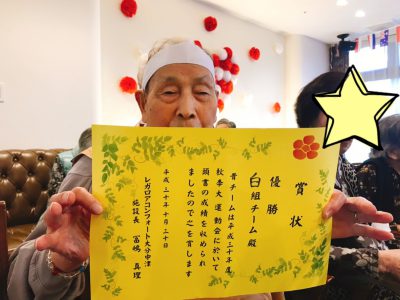 賞状
優勝
白組チーム殿
貴チームは平成三十年度
秋季大運動会に於いて
頭書の成績を収められ
ましたので之を賞します
平成三十年十月二十日
レガロアコンフォート大分中津
施設長 冨嶋 真理